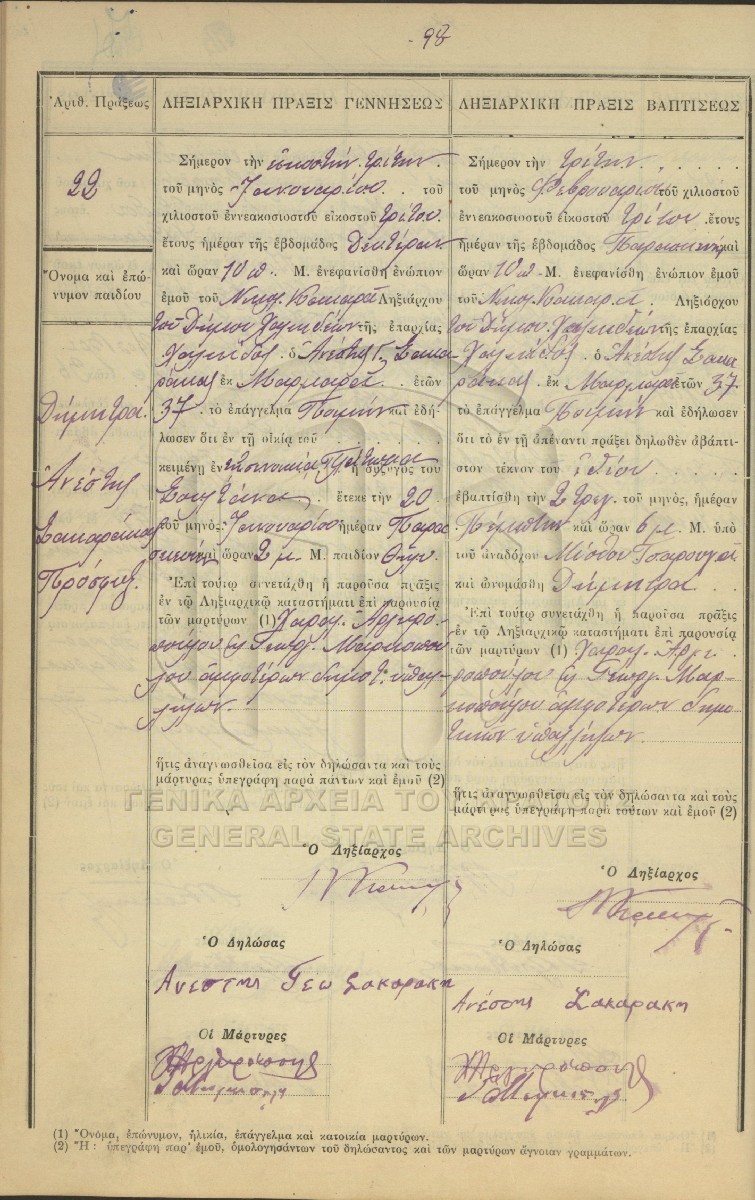 98
Ἀριθ. Πράξεως
22
Ὄνομα καὶ ἐπώ-
νυμον παιδίου
Δήμητρα
Ἀνέστης
Σακαράκας
Πρόσφυξ
ΛΗΞΙΑΡΧΙΚΗ ΠΡΑΞΙΣ ΓΕΝΝΗΣΕΩΣ
Σήμερον τὴν εἰκοστὴν τρίτην
τοῦ μηνὸς Ἰανουαρίου τοῦ
χιλιοστοῦ ἐννεακοσιοστοῦ εἰκοστοῦ τρίτου
ἔτους ἡμέραν τῆς ἑβδομάδος Δευτέραν
καὶ ὥραν 10 π. Μ. ἐνεφανίσθη ἐνώπιον
ἐμοῦ τοῦ Νικολ. Ληξιάρχου
τοῦ Δήμου Χαλκιδέων τῆς ἐπαρχίας
Χαλκίδος ὁ Ἀνέστης Γ. Σακα
ράκας ἐκ Μαρμαρᾶ ἐτῶν
37 τὸ ἐπάγγελμα Ποιμὴν καὶ ἐδή-
λωσεν ὅτι ἐν τῇ οἰκίᾳ τοῦ
κειμένῃ ἐν συνοικίᾳ ἡ σύζυγός του
ἔτεκε τὴν 20
τοῦ μηνὸς Ἰανουαρίου ἡμέραν Παρα
σκευὴν καὶ ὥραν 2 μ. Μ. παιδίον θῆλυ
Ἐπὶ τούτῳ συνετάχθη ἡ παροῦσα πρᾶξις
ἐν τῷ Ληξιαρχικῷ καταστήματι ἐπὶ παρουσίᾳ
τῶν μαρτύρων (1) Χαραλ. Ἀργυρο
πούλου Γεωργ. Μαρκοπού
λου ἀμφοτέρων δημοτ. ὑπαλ-
λήλων.
ἥτις ἀναγνωσθεῖσα εἰς τὸν δηλώσαντα καὶ τοὺς
μάρτυρας ὑπεγράφη παρὰ πάντων καὶ ἐμοῦ (2)
Ὁ Ληξίαρχος
Ὁ Δηλώσας
Ανεστης Γεω Σακαρακη
Οἱ Μάρτυρες
ΛΗΞΙΑΡΧΙΚΗ ΠΡΑΞΙΣ ΒΑΠΤΙΣΕΩΣ
Σήμερον τὴν τρίτην
τοῦ μηνὸς Φεβρουαρίου τοῦ χιλιοστοῦ
ἐννεακοσιοστοῦ εἰκοστοῦ τρίτου ἔτους
ἡμέραν τῆς ἑβδομάδος Παρασκευὴν καὶ
ὥραν 10 π. Μ. ἐνεφανίσθη ἐνώπιον ἐμοῦ
τοῦ Νικολ. Ληξιάρχου
τοῦ Δήμου Χαλκιδέων τῆς ἐπαρχίας
Χαλκίδος ὁ Ἀνέστης Σακα
ράκας ἐκ Μαρμαρᾶ ἐτῶν 37
τὸ ἐπάγγελμα Ποιμὴν καὶ ἐδήλωσεν
ὅτι τὸ ἐν τῇ ἀπέναντι πράξει δηλωθὲν ἀβάπτι-
στον τέκνον τοῦ ἰδίου
ἐβαπτίσθη τὴν 2 τρεχ. τοῦ μηνός, ἡμέραν
Πέμπτην καὶ ὥραν 6 μ. Μ. ὑπὸ
τοῦ ἀναδόχου
καὶ ὠνομάσθη Δήμητρα
Ἐπὶ τούτῳ συνετάχθη ἡ παροῦσα πρᾶξις
ἐν τῷ Ληξιαρχικῷ καταστήματι ἐπὶ παρουσίᾳ
τῶν μαρτύρων (1) Χαραλ. Ἀργυ
ροπούλου Γεωργ. Μαρ-
κοπούλου ἀμφοτέρων δημο
τικῶν ὑπαλλήλων.
ἥτις ἀναγνωσθεῖσα εἰς τὸν δηλώσαντα καὶ τοὺς
μάρτυρας ὑπεγράφη παρὰ τούτων καὶ ἐμοῦ (2)
Ὁ Ληξίαρχος
Ὁ Δηλώσας
Ανέστης Σακαρακη
Οἱ Μάρτυρες
ΓΕΝΙΚΑ ΑΡΧΕΙΑ ΤΟΥ ΚΡΑΤΟΥΣ
GENERAL STATE ARCHIVES
(1) Ὄνομα, ἐπώνυμον, ἡλικία, ἐπάγγελμα καὶ κατοικία μαρτύρων.
(2) Ἤ: ὑπεγράφη παρ' ἐμοῦ, ὁμολογησάντων τοῦ δηλώσαντος καὶ τῶν μαρτύρων ἄγνοιαν γραμμάτων.